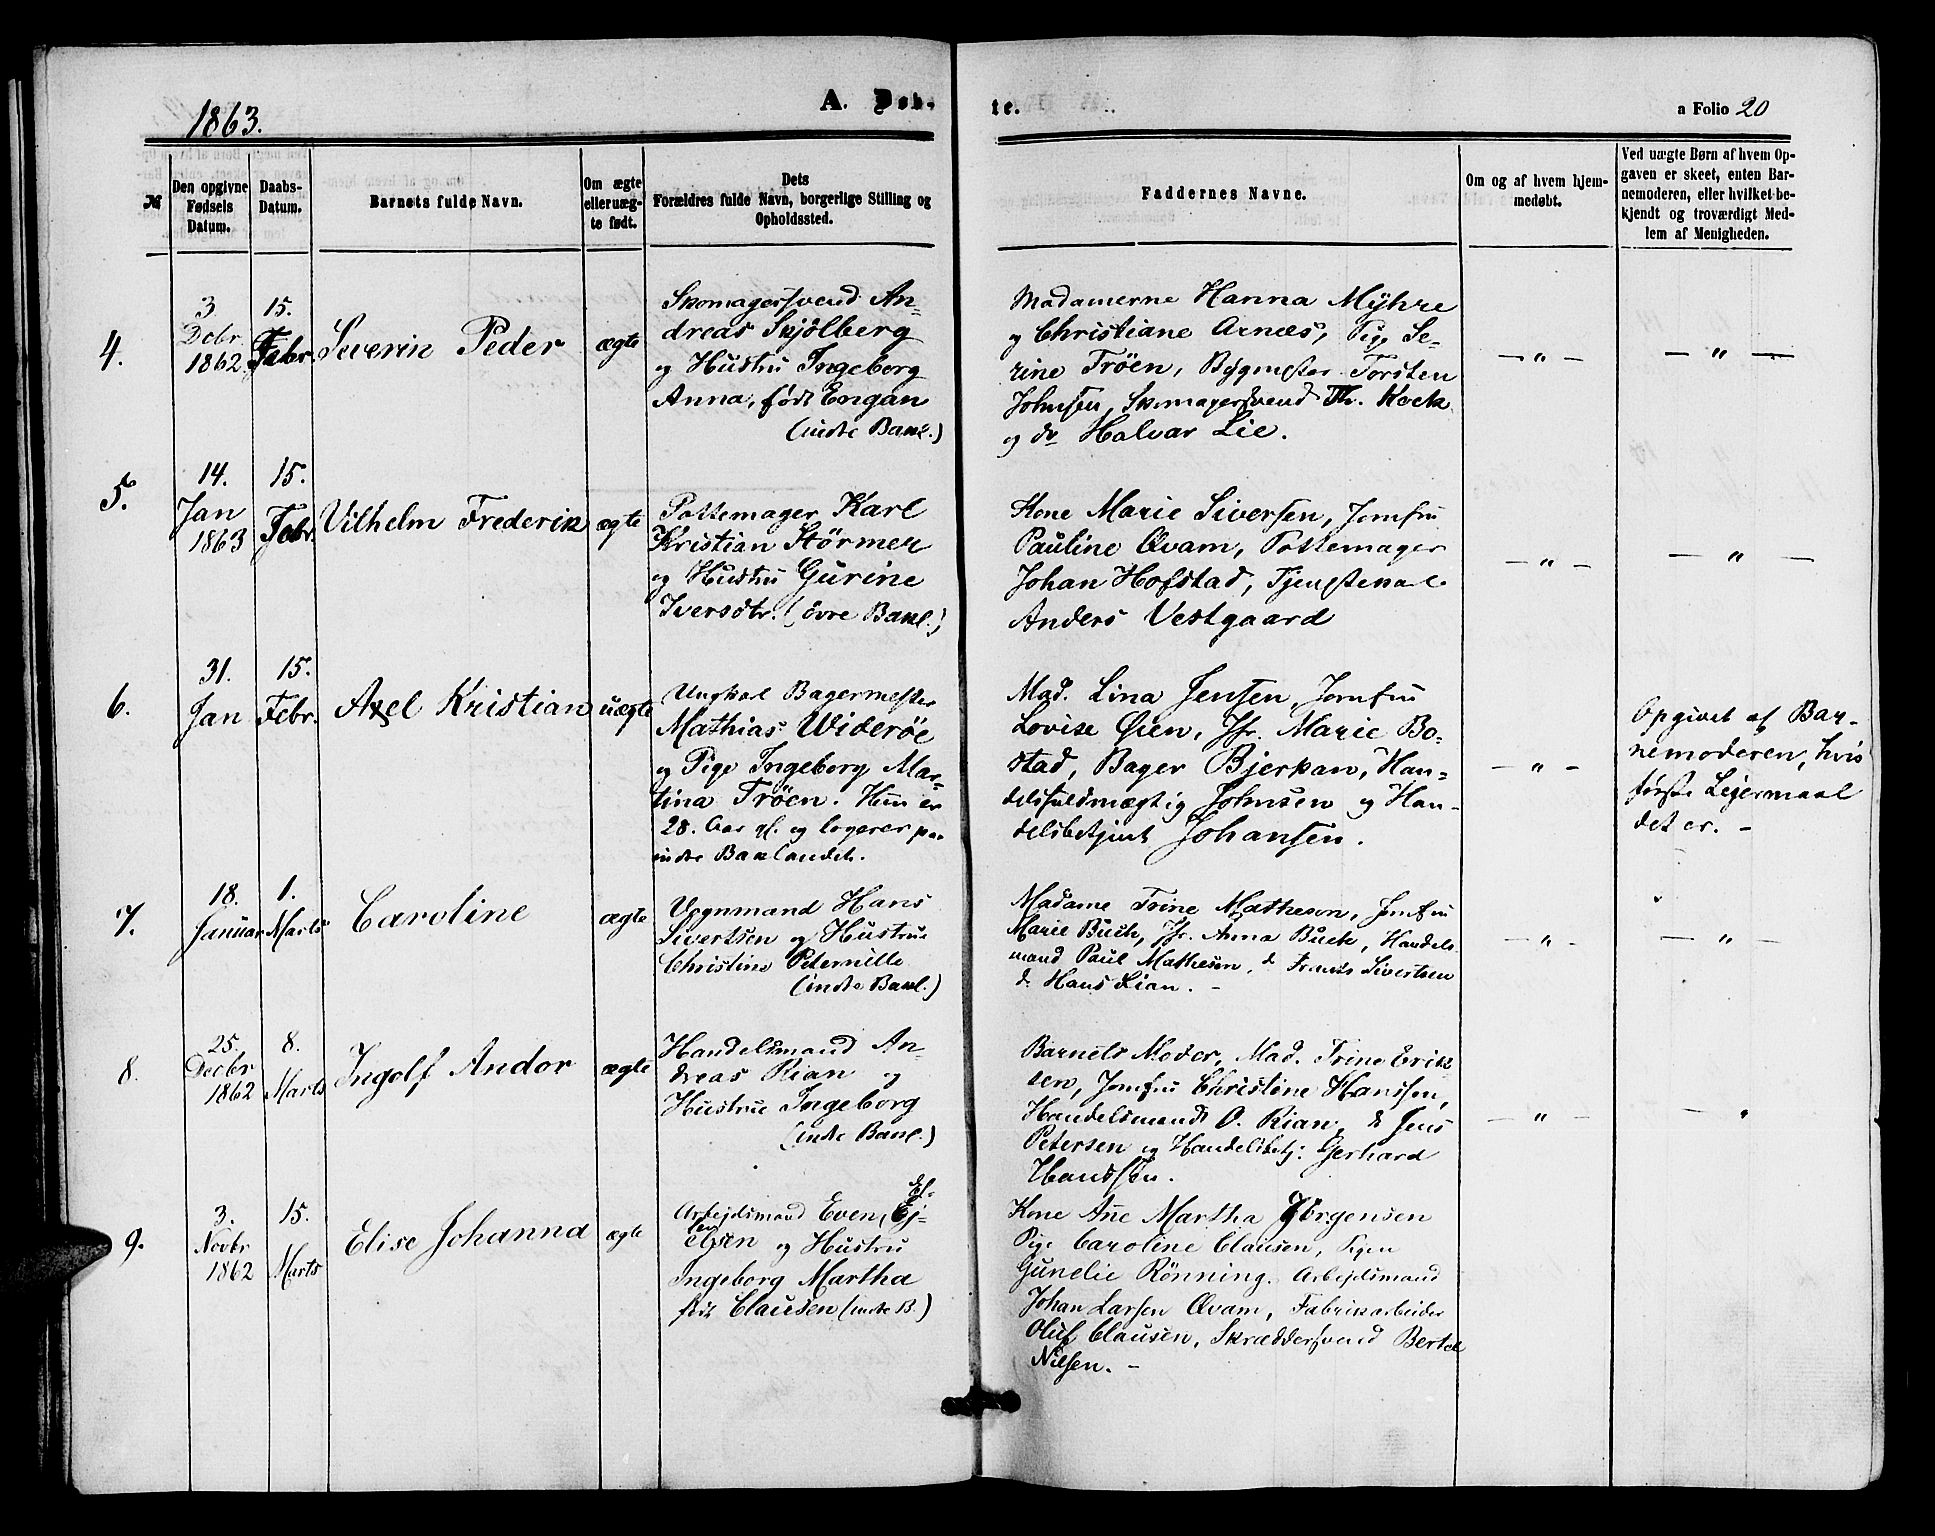 1863.
A. Døb-
te.
a Folio 20
№
Den opgivne
Fødsels
Datum.
Daabs-
Datum.
Barnets fulde Navn.
Om ægte
eller uæg-
te født.
Dets
Forældres fulde Navn, borgerlige Stilling og
Opholdssted.
Faddernes Navne.
Om og af hvem hjem-
medøbt.
Ved uægte Børn af hvem Op-
gaven er skeet, enten Bar-
nemoderen, eller hvilket be-
kjendt og troværdigt Med-
lem af Menigheden.
4.
3
Decbr
1862
15.
Febr.
Severin Peder
ægte
Skomagersvend An-
dreas Skjölberg
og Hustru Ingeborg
Anna, født Engan
(indre Bakl.)
Madamerne Hanna Myhre
og Christiane Arnæs, Pige Se-
rine Tröen, Bygmester Torsten
Johnsen, Skomagersvend Th. Koek
og do Halvar Lie.
— " —
— " —
5.
14.
Jan
1863
15.
Febr.
Vilhelm Frederik
ægte
Pottemager Karl
Kristian Störmer
og Hustru Gurine
Iversdtr. (övre Bakl.)
Kone Marie Siversen, Jomfru
Pauline Qvam, Pottemager
Johan Hofstad, Tjenstekal
Anders Vestgaard
— " —
— " —
6.
31.
Jan
15.
Febr.
Axel Kristian
uægte
Ungkal Bagermester
Mathias Wideröe
og Pige Ingeborg Mar-
tina Tröen. Hun er
28. Aar gl. og logerer paa
indre Baklandet.
Mad. Lina Jensen, Jomfru
Lovise Øien, Jfr. Marie Bo-
stad, Bager Bjerkan, Han-
delsfuldmægtig Johnsen og Han-
delsbetjent Johansen.
— " —
Opgivet af Bar-
nemoderen, hvis
første Leiermaal
det er. -
7.
18.
Januar
1.
Marts
Caroline
ægte
Vognmand Hans
Sivertsen og Hustru
Christine Peternille
(indre Bakl.)
Madame Trine Matheson, Jomfru
Marie Buch, Jfr. Anna Buck, Handels
mand Paul Mathesen, do Frants Sivertsen
do Hans Lian. -
— " —
— " —
8.
25.
Decbr
1862
8.
Marts
Ingolf Andor
ægte
Handelsmand An-
dreas Rian og
Hustru Ingeborg
(indre Bakl.)
Barnets Moder, Mad. Trine Erik
sen, Jomfru Christine Hanssen,
Handelsmand O. Rian, do Jens
Petersen og Handelsbetj: Gerhard
Hanssen.
— " —
— "
9.
3.
Novbr
1862
15.
Marts
Elise Johanna
ægte
Arbejdsmand Even
og Hustru
Ingeborg Martha
født Clausen (indre B.)
Kone Ane Martha Jörgensen
Pige Caroline Clausen, Pigen
Gunelie Rönning. Arbejdsmand
Johan Larsen Qvam, Fabrikarbeider
Oluf Clausen, Skræddersvend Bertel
Nilsen. -